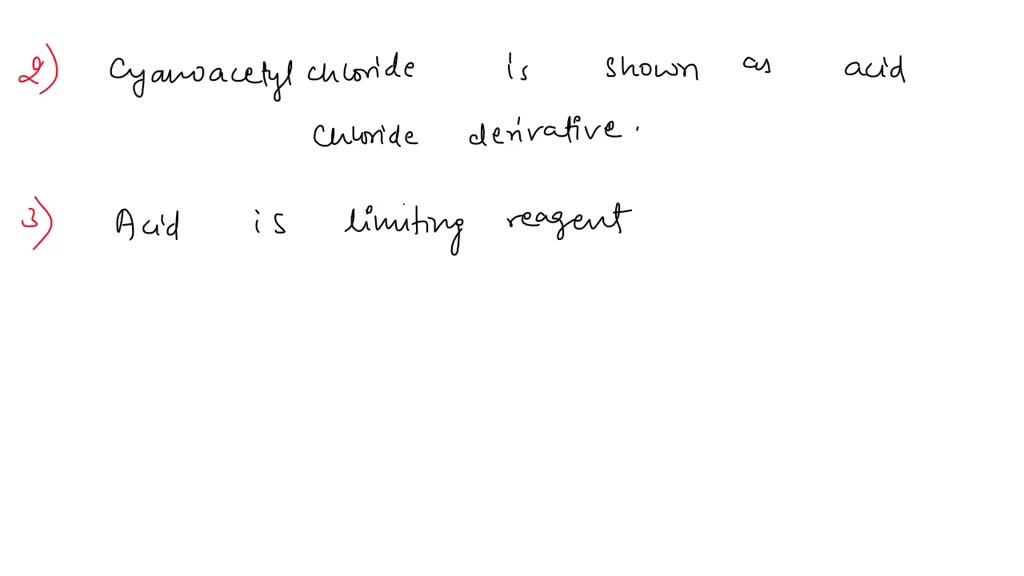 2) Cyanoacetyl chloride is shown as acid
chloride derivative.
3) Acid is limiting reagent